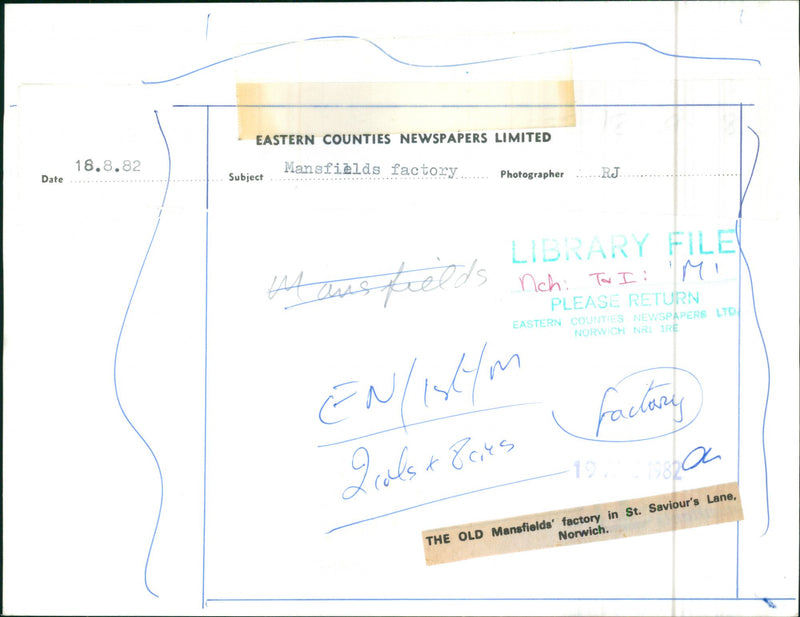 EASTERN COUNTIES NEWSPAPERS LIMITED
Date 18.8.82 Subject Mansfields factory Photographer RJ
Mansfields
LIBRARY FILE
Nch: T & I: 'M'
PLEASE RETURN
EASTERN COUNTIES NEWSPAPERS LTD.
NORWICH NR1 1RE
EN/1st/M
factory
2 cols x 8 cms
19 1982
THE OLD Mansfields' factory in St. Saviour's Lane,
Norwich.